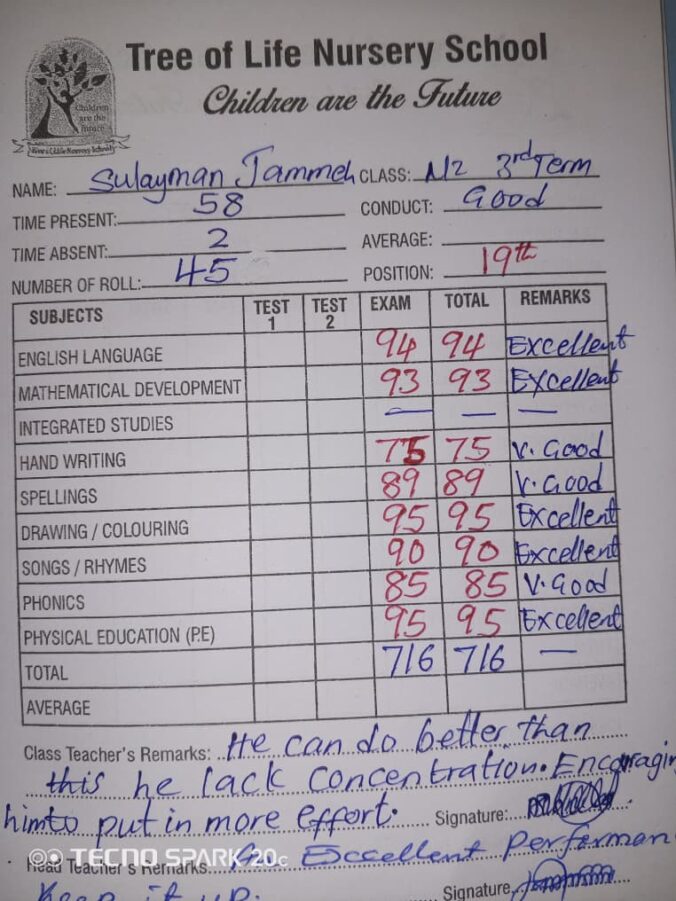 Tree of Life Nursery School
Children are the Future
Children are the Future
Tree of Life Nursery School
NAME: Sulayman Jammeh CLASS: N2 3rd Term
TIME PRESENT: 58 CONDUCT: Good
TIME ABSENT: 2 AVERAGE:
NUMBER OF ROLL: 45 POSITION: 19th
SUBJECTS TEST 1 TEST 2 EXAM TOTAL REMARKS
ENGLISH LANGUAGE 94 94 Excellent
MATHEMATICAL DEVELOPMENT 93 93 Excellent
INTEGRATED STUDIES — — —
HAND WRITING 75 75 V. Good
SPELLINGS 89 89 V. Good
DRAWING / COLOURING 95 95 Excellent
SONGS / RHYMES 90 90 Excellent
PHONICS 85 85 V. Good
PHYSICAL EDUCATION (P.E) 95 95 Excellent
TOTAL 716 716 —
AVERAGE
Class Teacher's Remarks: He can do better than
this he lack concentration. Encouraging
him to put in more effort. Signature:
TECNO SPARK 20c
Head Teacher's Remarks An Excellent Performan
Keep it up. Signature